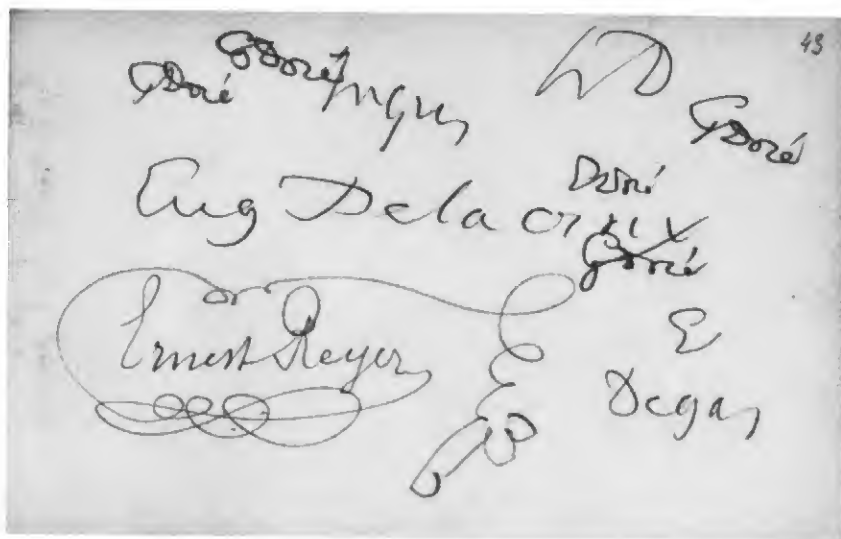 43
GDoré GDoré Ingres D
GDoré
Doré
Eug Delacroix
GDoré
Ernest Reyer
E
Degas